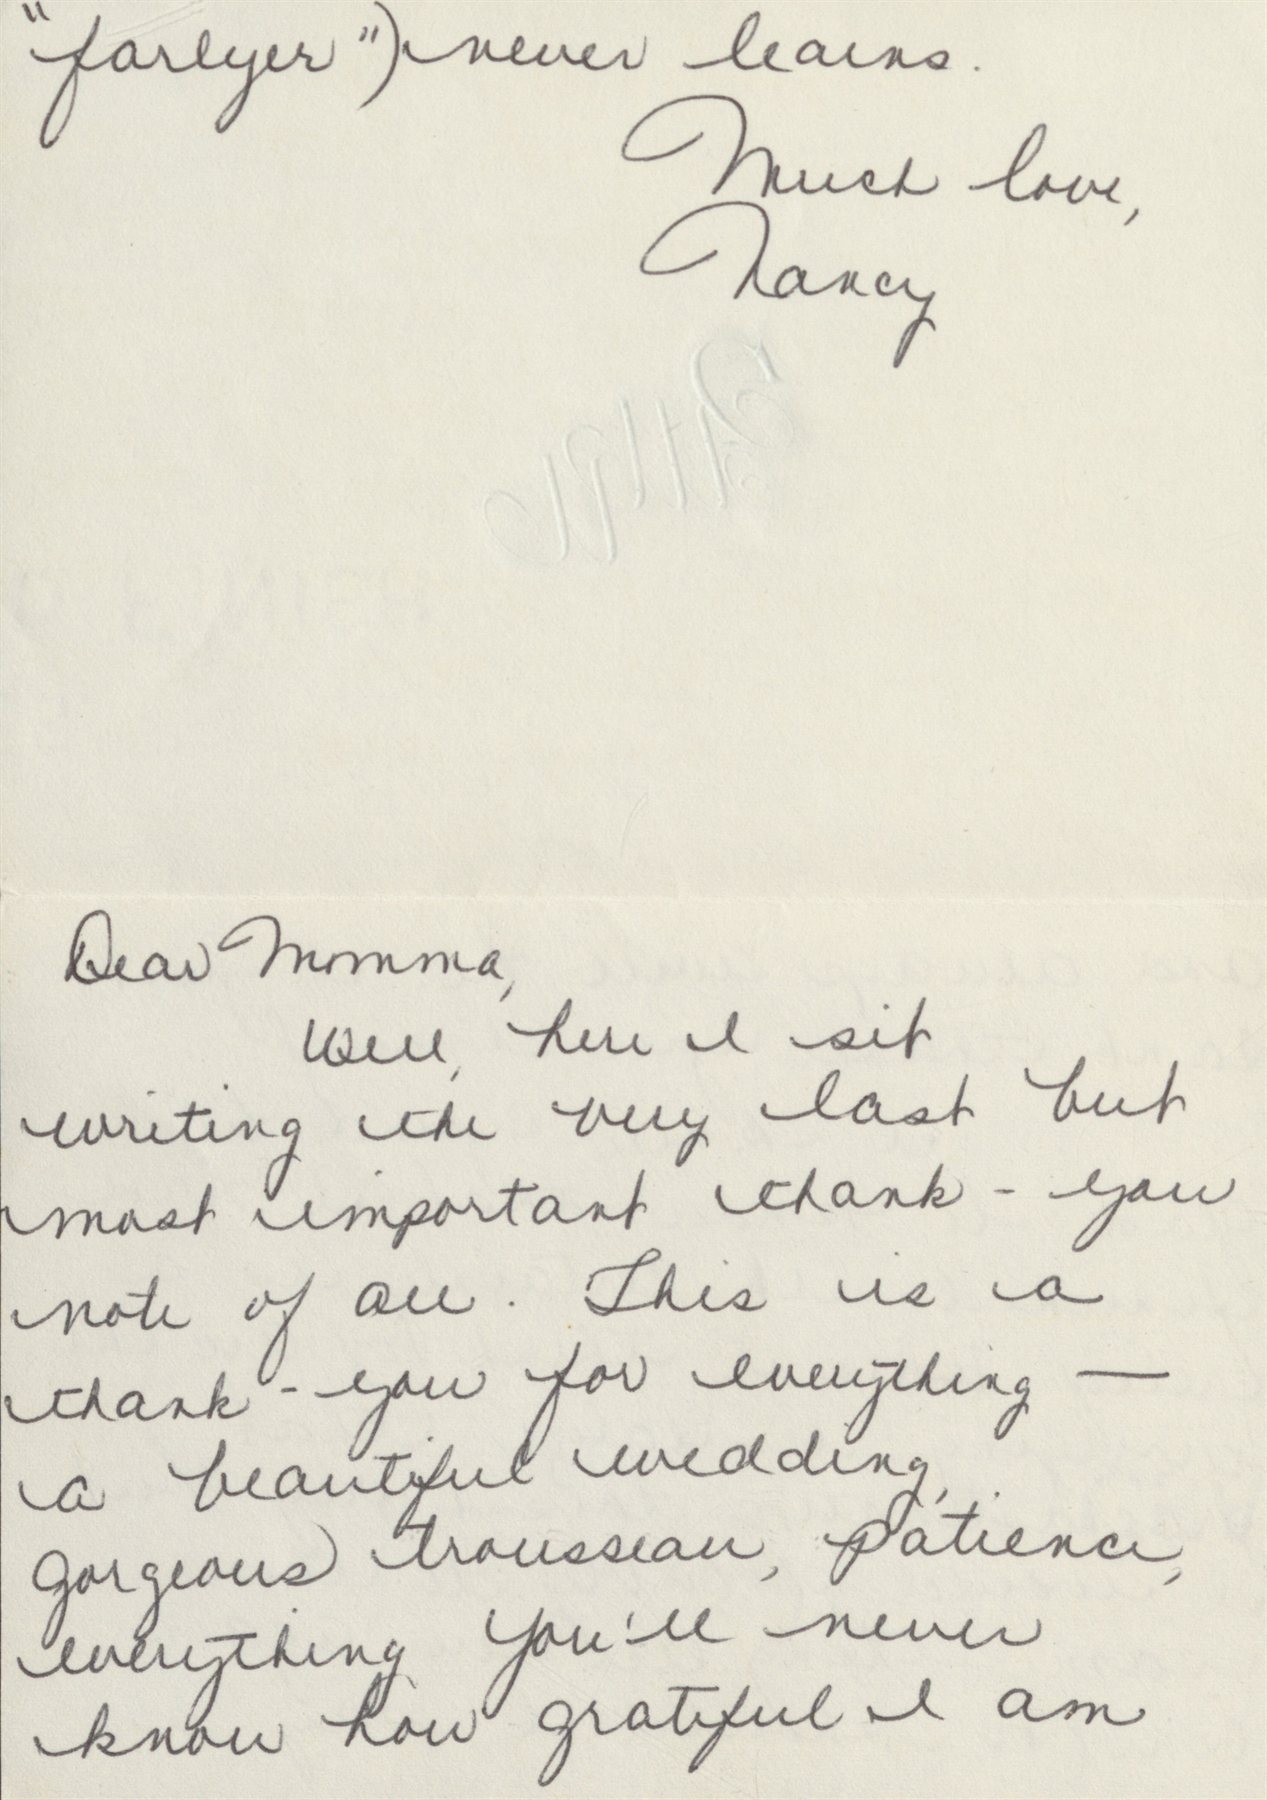 "farlyer") never learns.
Much love,
Nancy
Dear Momma,
Well, here I sit
writing the very last but
most important thank-you
note of all. This is a
thank-you for everything —
a beautiful wedding,
gorgeous trousseau, patience,
everything you'll never
know how grateful I am